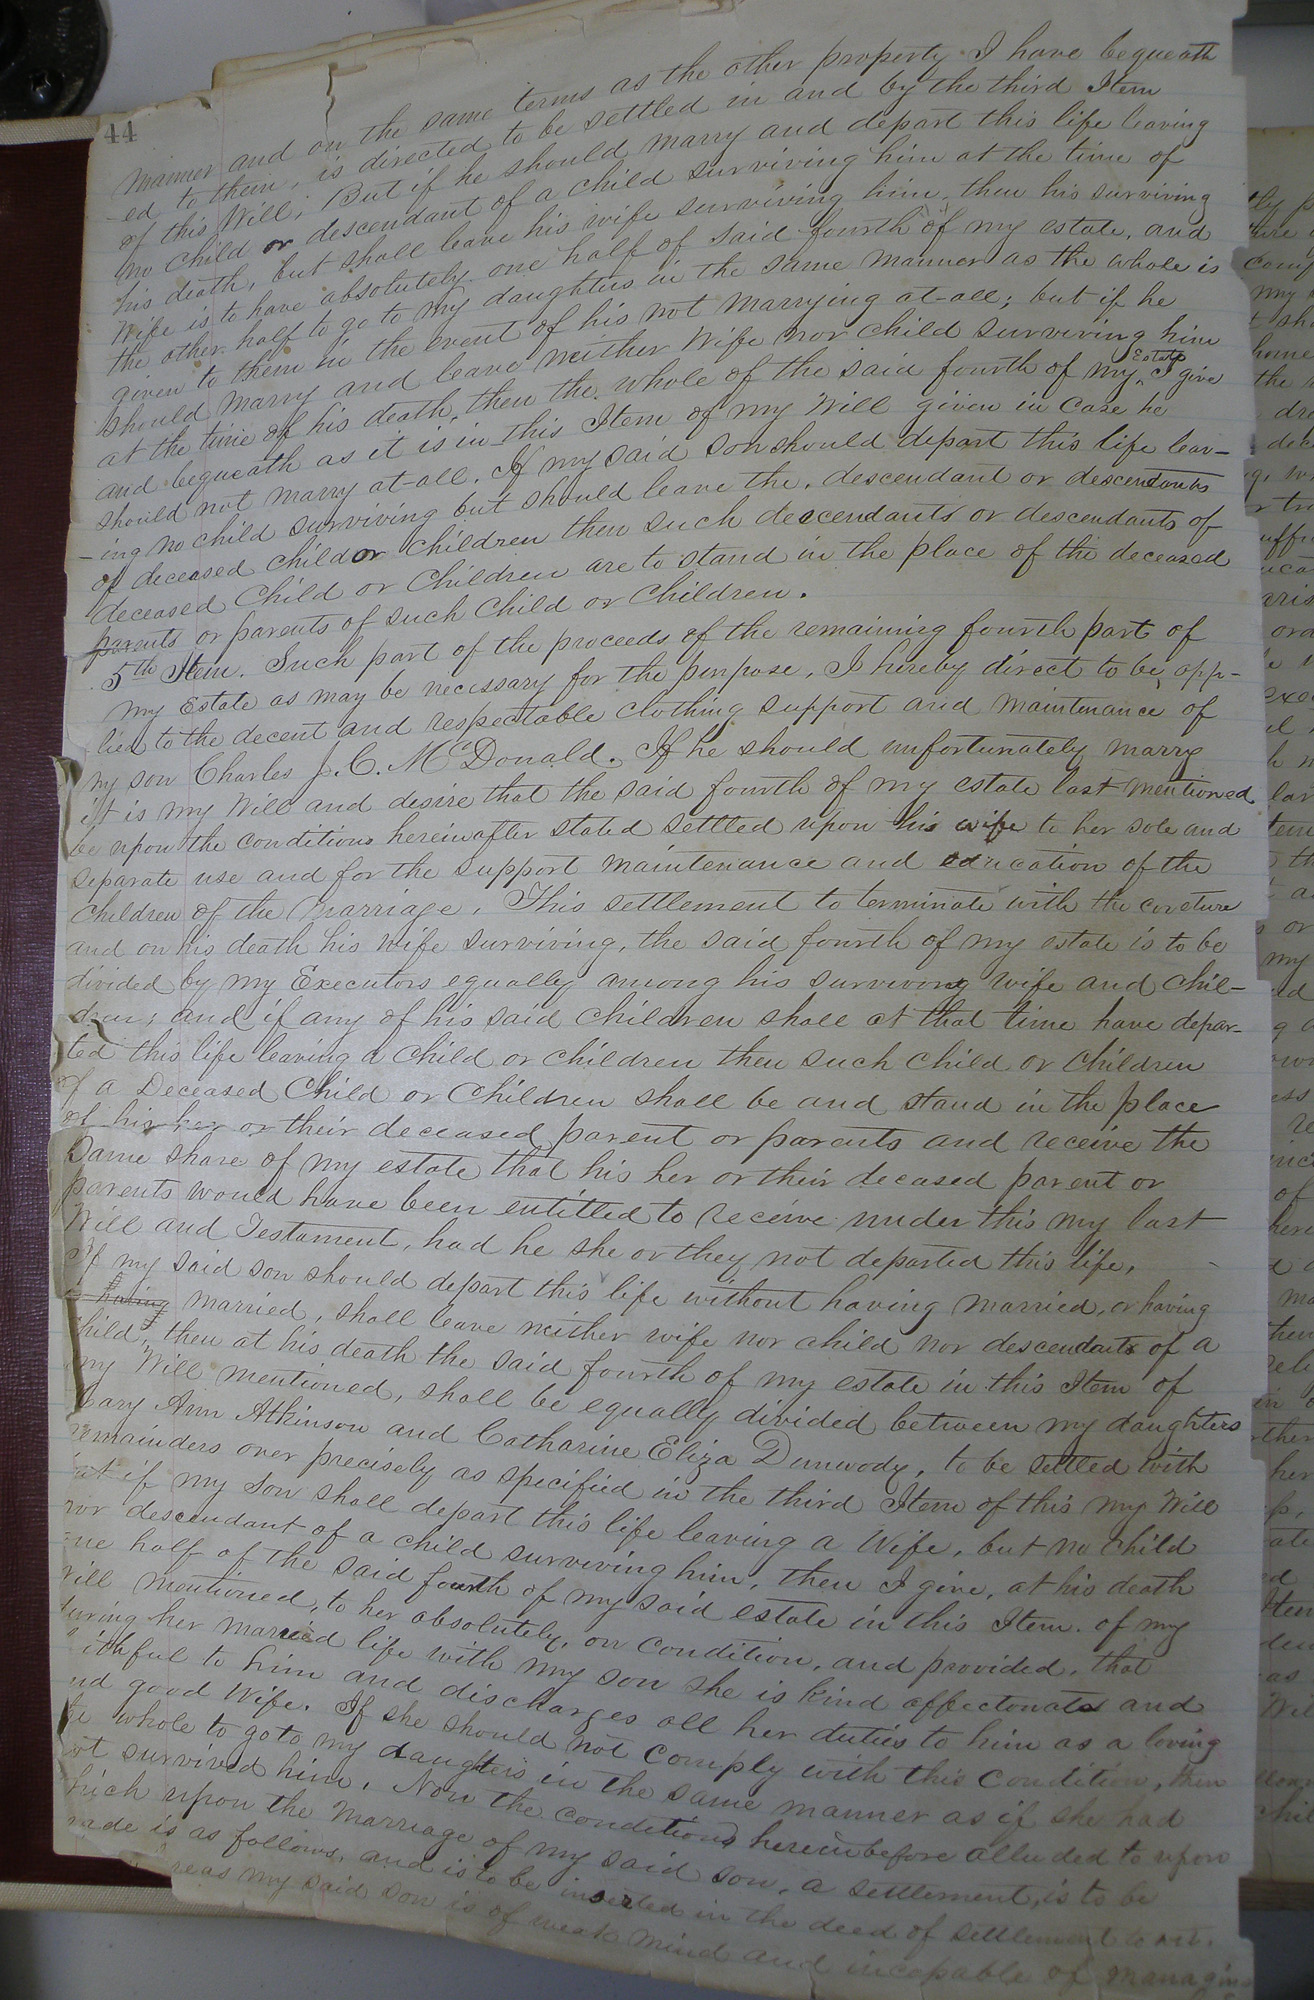 44
manner and on the same terms as the other property I have bequeath
-ed to them, is directed to be settled in and by the third Item
of this Will. But if he should marry and depart this life leaving
no child or descendant of a child surviving him at the time of
his death, but shall leave his wife surviving him, then his surviving
Wife is to have absolutely one half of said fourth of my estate, and
the other half to go to my daughters in the same manner as the whole is
given to them in the event of his not marrying at-all; but if he
should marry and leave neither Wife nor child surviving him
at the time of his death, then the whole of the said fourth of my Estate I give
and bequeath as it is in this Item of my Will given in case he
should not marry at-all. If my said son should depart this life leav-
-ing no child surviving but should leave the descendant or descendants
of deceased child or children then such descendants or descendants of
deceased Child or Children are to stand in the place of the deceased
parents or parents of such Child or Children.
5th Item. Such part of the proceeds of the remaining fourth part of
my Estate as may be necessary for the purpose, I hereby direct to be app-
-lied to the decent and respectable clothing support and maintenance of
my son Charles J. C. McDonald. If he should unfortunately marry
it is my Will and desire that the said fourth of my estate last mentioned
be upon the conditions hereinafter stated settled upon his wife to her sole and
separate use and for the support maintenance and education of the
Children of the Marriage. This settlement to terminate with the coveture
and on his death his wife surviving, the said fourth of my estate is to be
divided by my Executors equally among his surviving wife and chil-
dren; and if any of his said children shall at that time have depar-
ted this life leaving a child or children then such child or children
of a Deceased Child or Children shall be and stand in the place
of his her or their deceased parent or parents and receive the
Same share of my estate that his her or their deceased parent or
parents would have been entitled to receive under this my last
Will and Testament, had he she or they not departed this life.
If my said son should depart this life without having married, or having
having married, shall leave neither wife nor child nor descendants of a
child, then at his death the said fourth of my estate in this Item of
my Will mentioned, shall be equally divided between my daughters
Mary Ann Atkinson and Catharine Eliza Dunwody, to be settled with
remainders over precisely as specified in the third Item of this my Will
but if my Son shall depart this life leaving a Wife, but no child
nor descendant of a child surviving him, then I give, at his death
one half of the said fourth of my said estate in this Item of my
Will mentioned, to her absolutely, on condition, and provided, that
during her married life with my son she is kind affectionate and
faithful to him and discharges all her duties to him as a loving
and good Wife. If she should not comply with this condition, then
the whole to go to my daughters in the same manner as if she had
not survived him. Now the conditions hereinbefore alluded to upon
which upon the Marriage of my said son, a settlement, is to be
made is as follows, and is to be inserted in the deed of settlement to wit.
Whereas my said son is of weak mind and incapable of managing